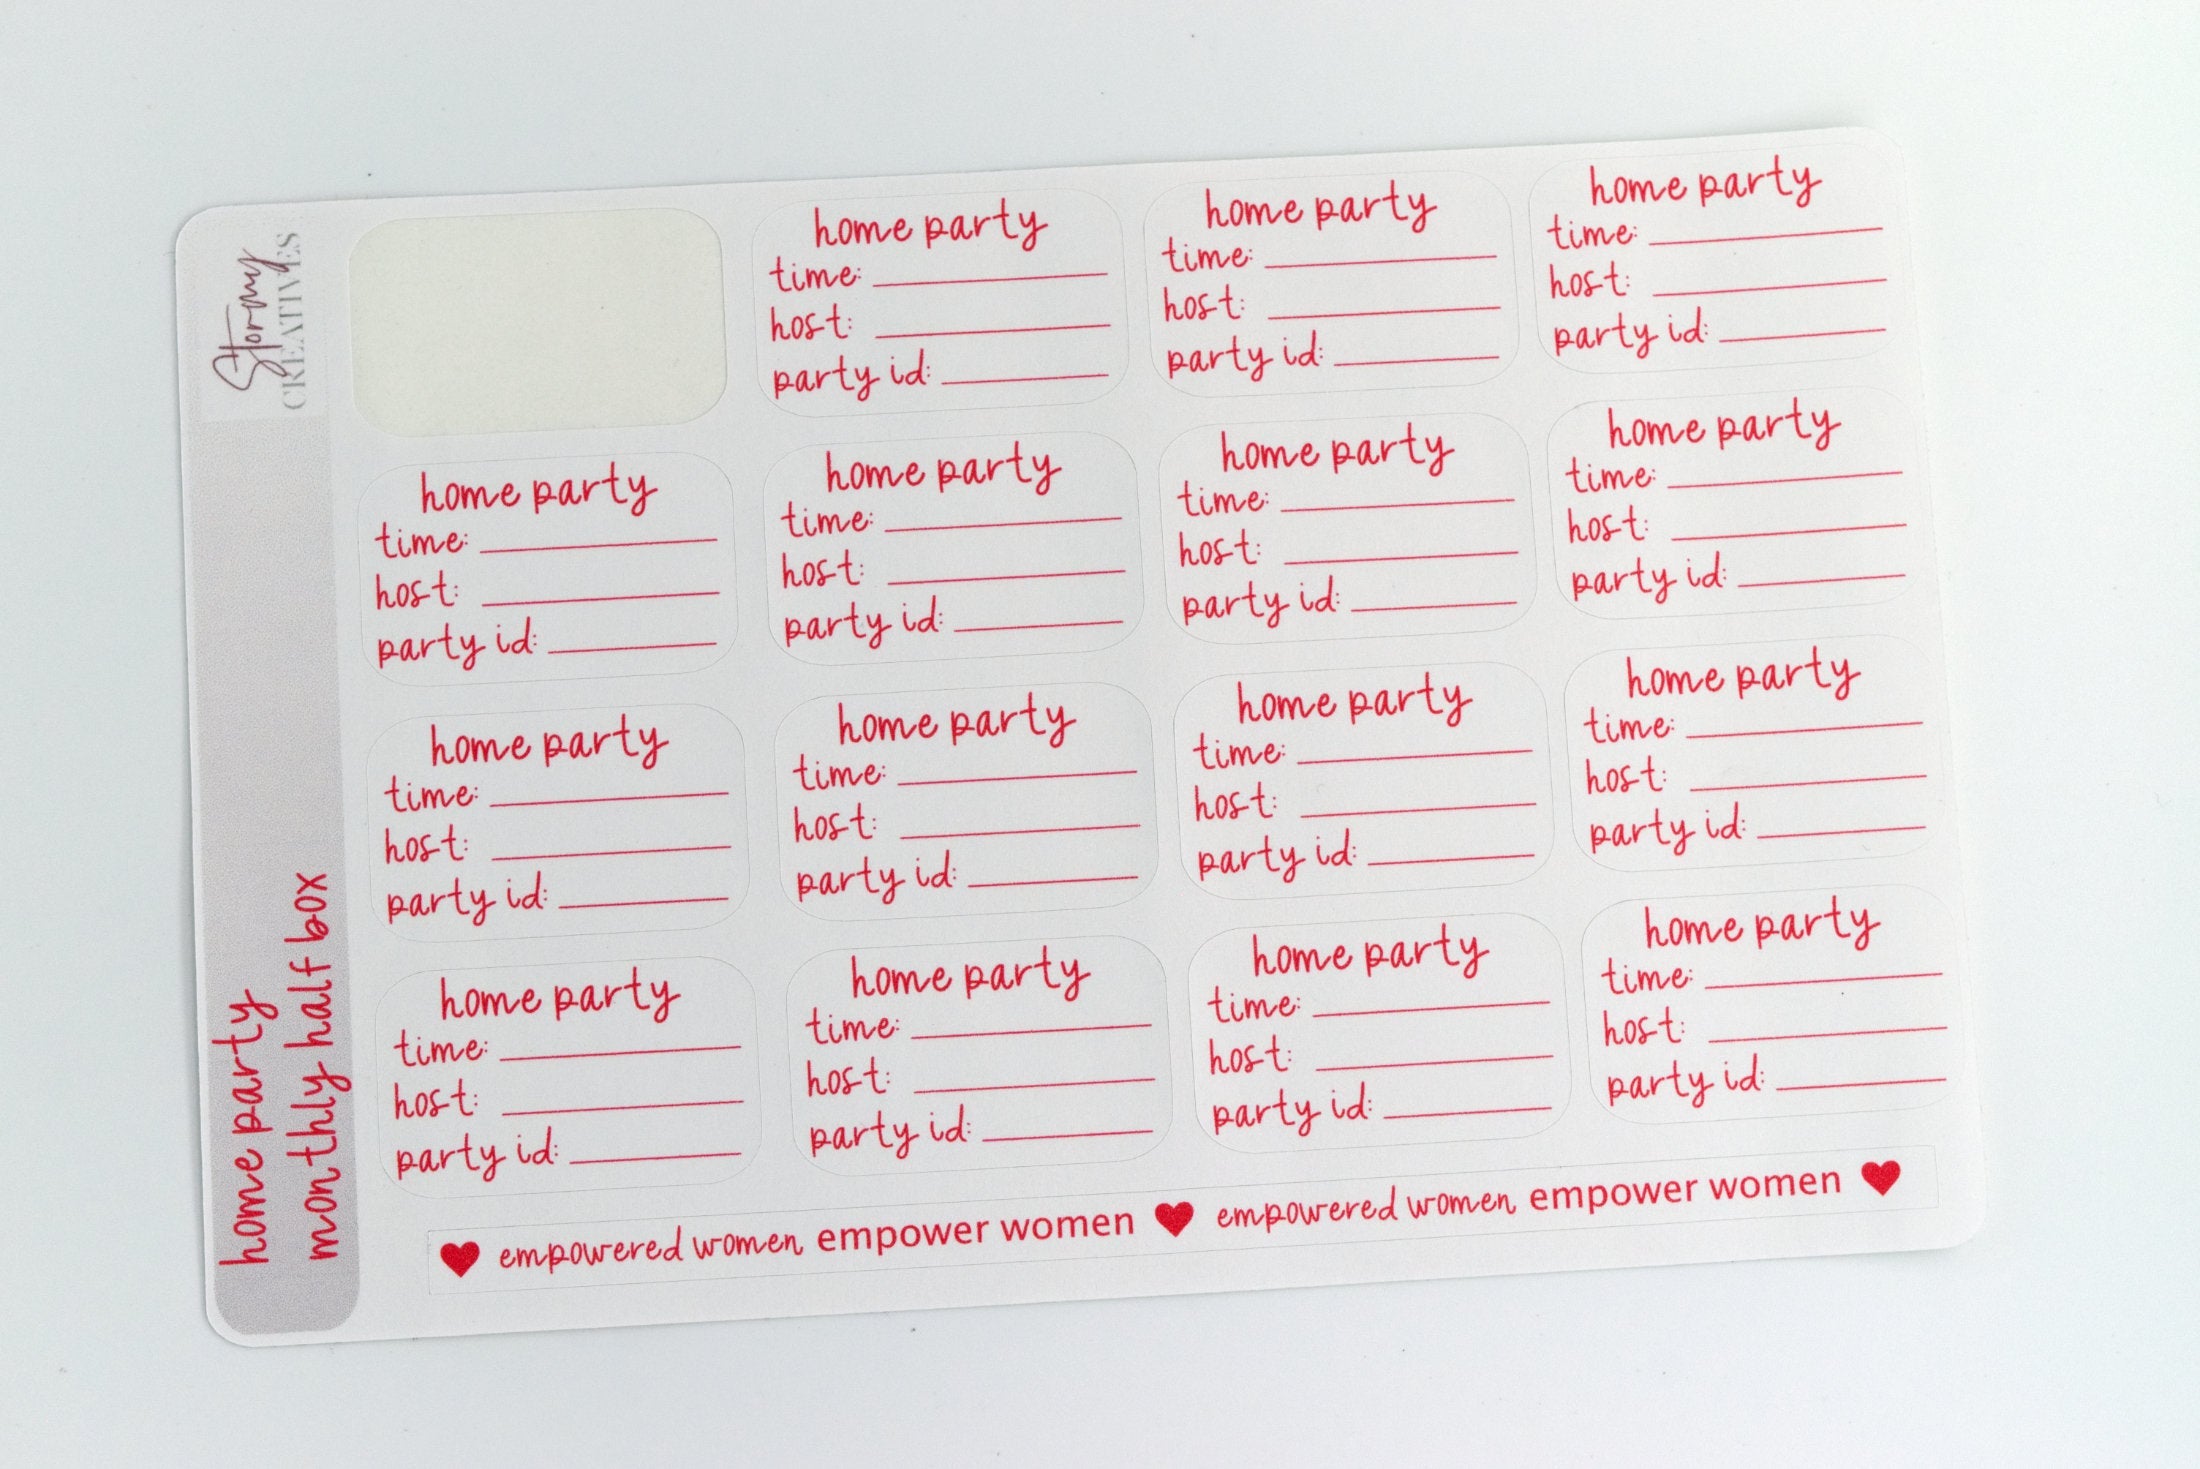 Stormy
CREATIVES
home party
monthly half box
home party
time:
host:
party id:
home party
time:
host:
party id:
home party
time:
host:
party id:
home party
time:
host:
party id:
home party
time:
host:
party id:
home party
time:
host:
party id:
home party
time:
host:
party id:
home party
time:
host:
party id:
home party
time:
host:
party id:
home party
time:
host:
party id:
home party
time:
host:
party id:
home party
time:
host:
party id:
home party
time:
host:
party id:
home party
time:
host:
party id:
home party
time:
host:
party id:
empowered women empower women empowered women empower women